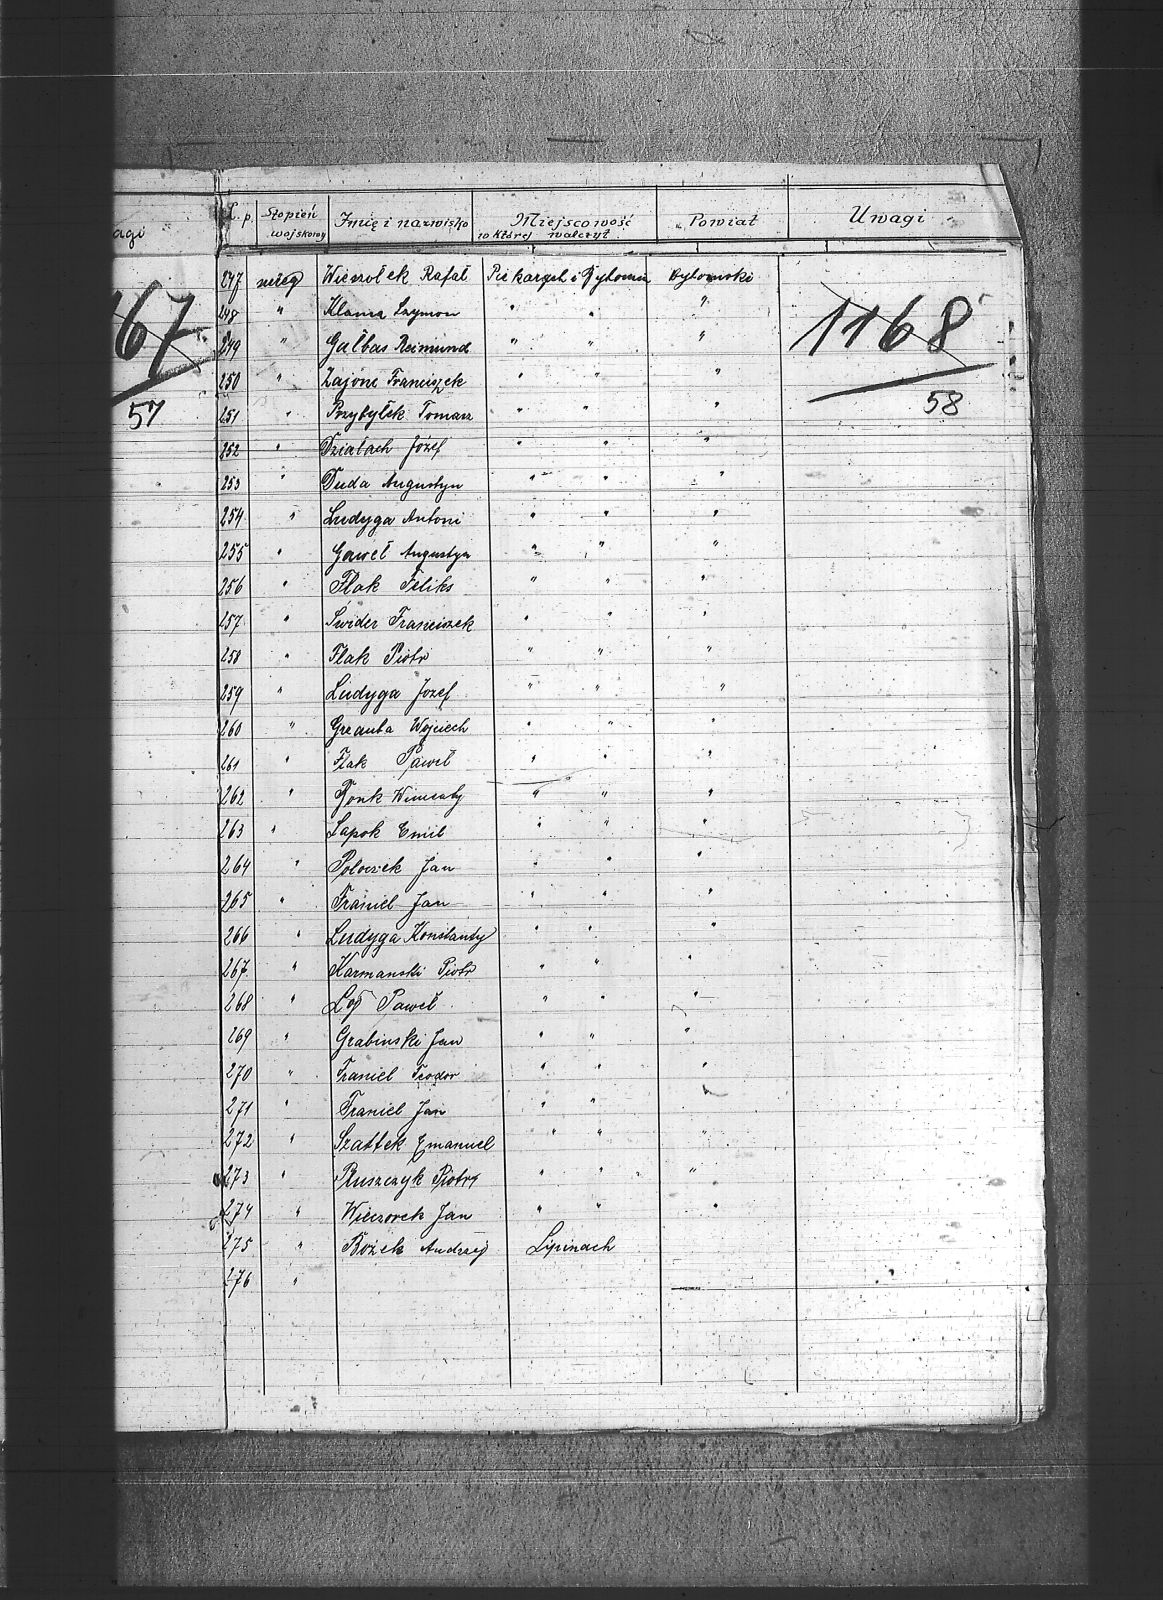 L. p. Stopień wojskowy Imię i nazwisko Miejscowość w której walczył Powiat Uwagi
agi
247 szereg Wieczołek Rafał Piekarach i Bytomiu bytomski
67
1168
248 " Klama Szymon " " "
249 " Galbas Reimund " " "
250 " Zając Franciszek " " "
57
58
251 " Przybyłek Tomasz " " "
252 " Działach Józef " " "
253 " Duda Augustyn " " "
254 " Ludyga Antoni " " "
255 " Gaweł Augustyn " " "
256 " Flak Feliks " " "
257 " Świder Franciszek " " "
258 " Flak Piotr " " "
259 " Ludyga Józef " " "
260 " Wojciech " " "
261 " Flak Paweł " " "
262 " " " "
263 " Łapok Emil " " "
264 " Poloczek Jan " " "
265 " Franiel Jan " " "
266 " Ludyga Konstanty " " "
267 " Karmanski Piotr " " "
268 " Paweł " " "
269 " Grabinski Jan " " "
270 " Franiel Teodor " " "
271 " Franiel Jan " "
272 " Szattek Emanuel " " "
273 " Ruszczyk Piotr " " "
274 " Wieczorek Jan " " "
275 " Bożek Andrzej Lipinach
276 "